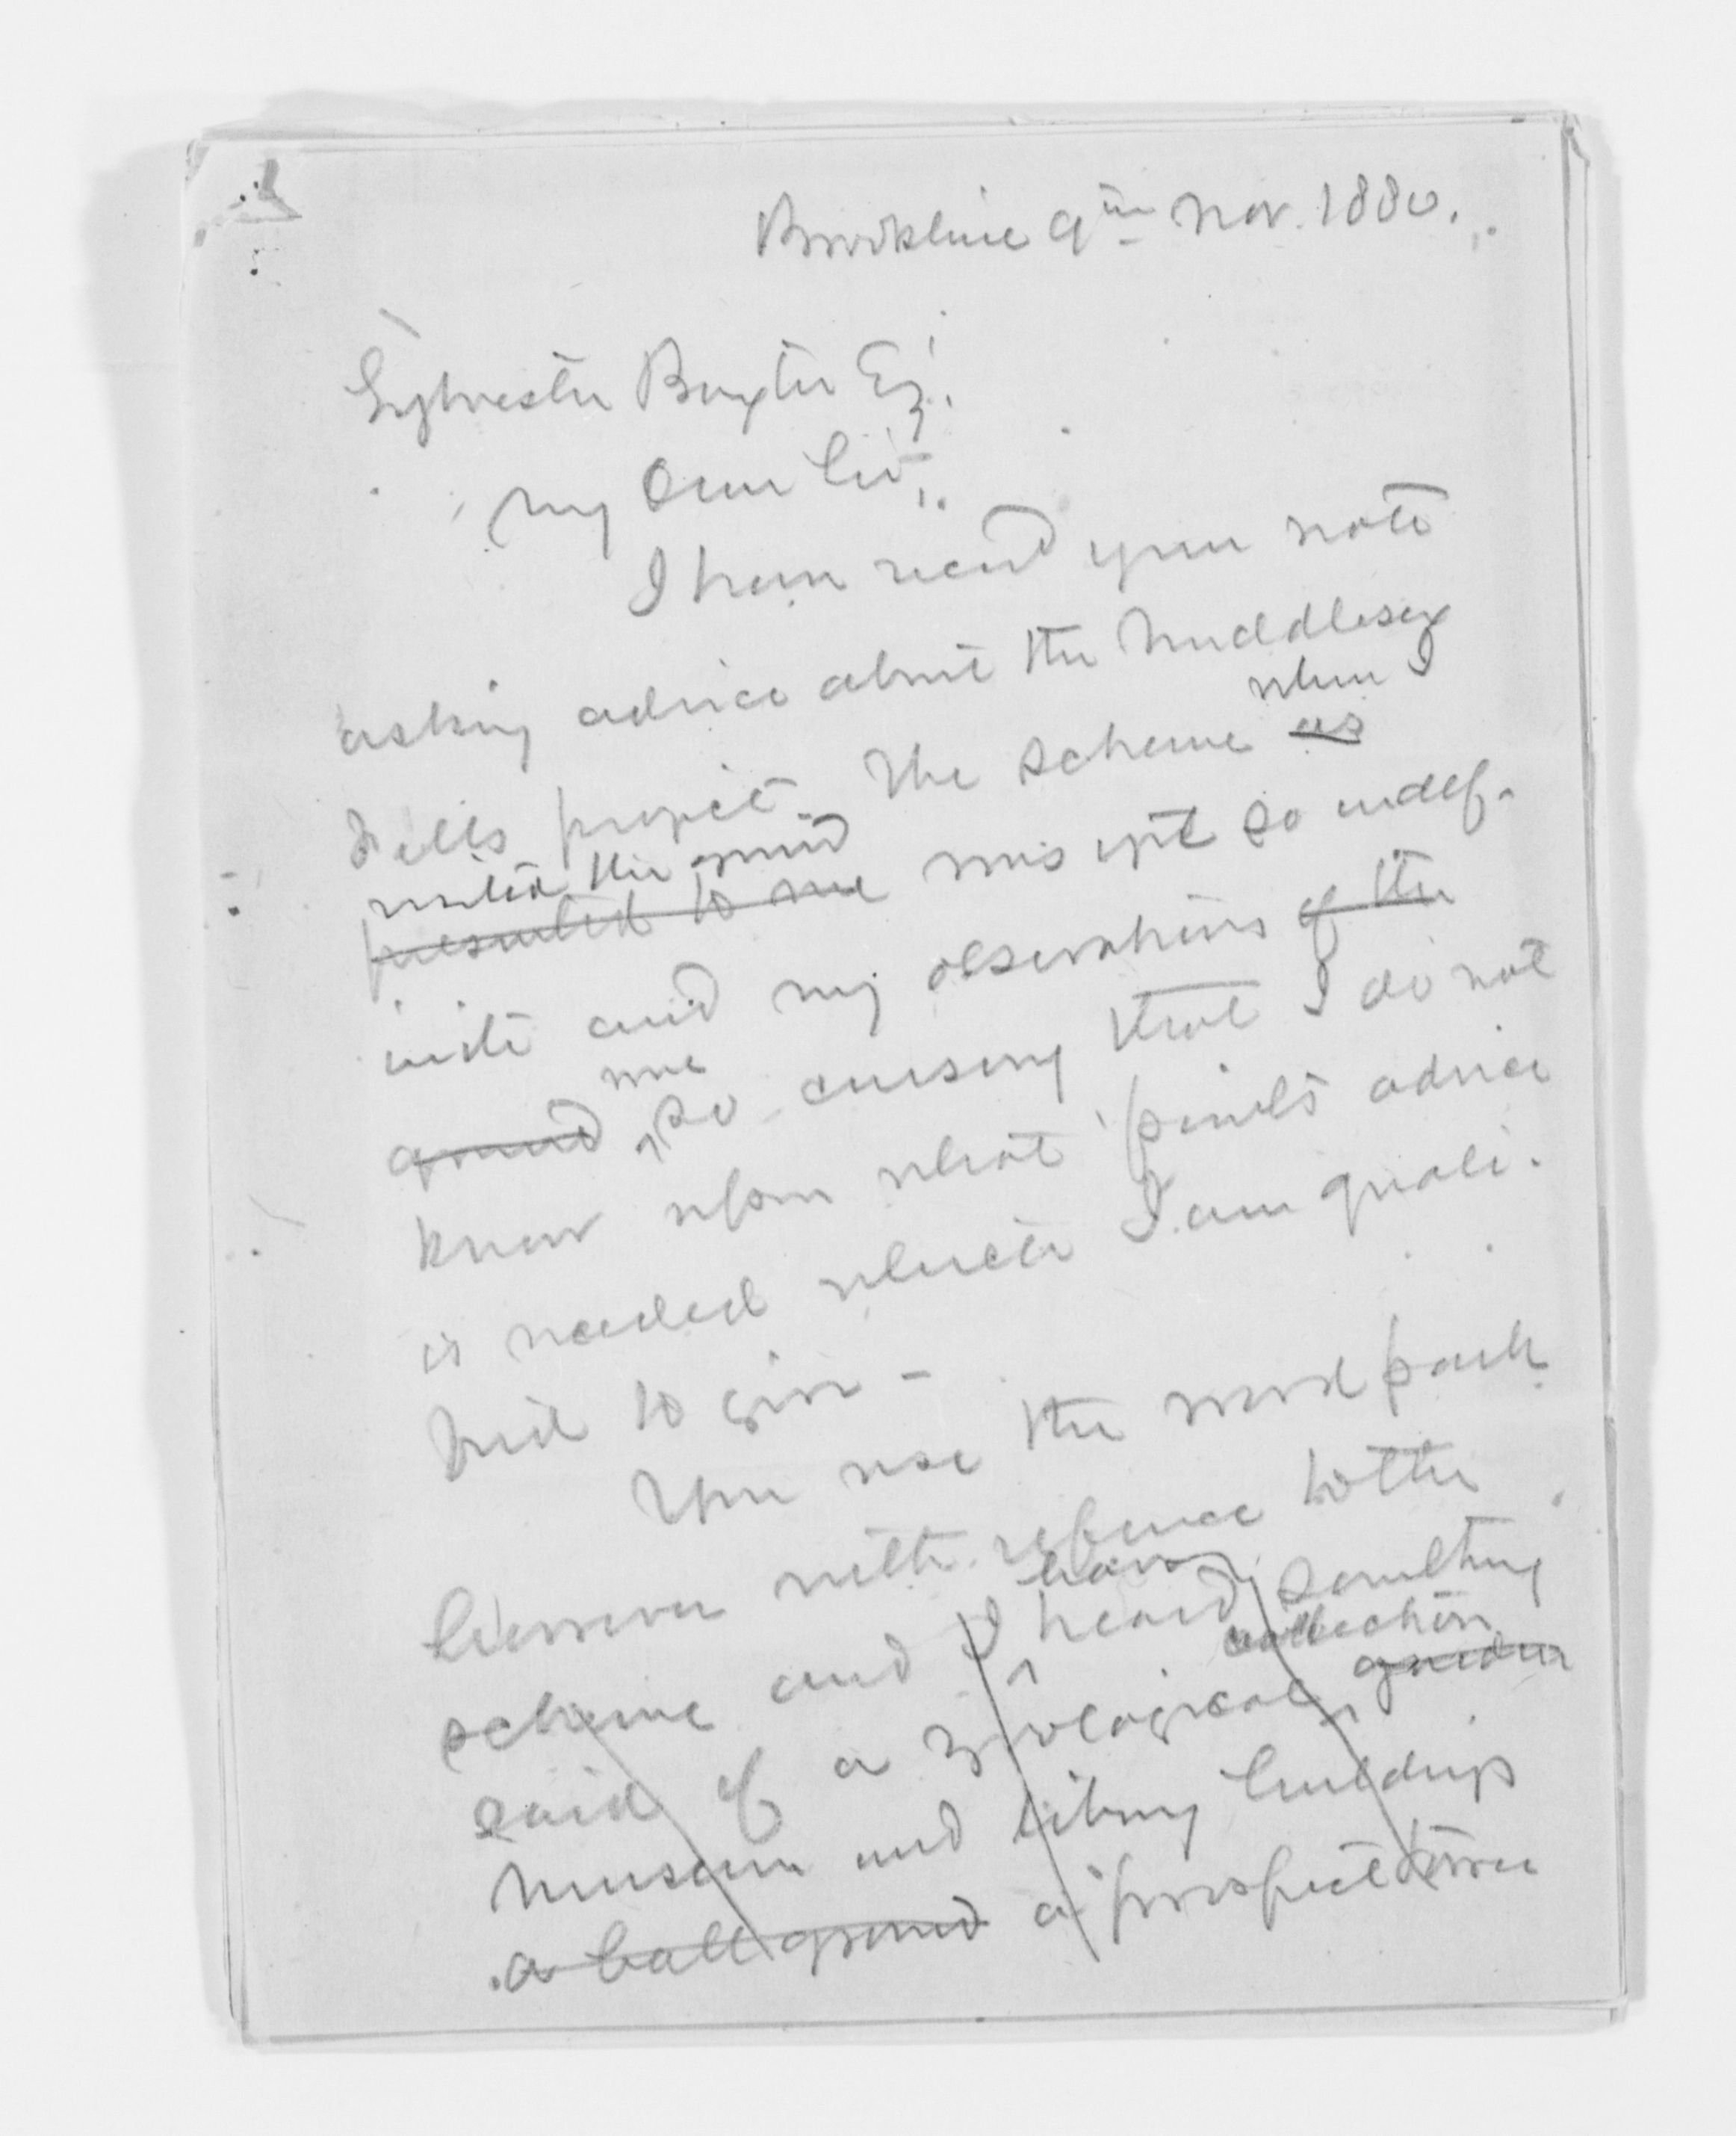 Brookline 9th Nov. 1880.
Sylvester Baxter Esq.
My Dear Sir,
I have recd your note
asking advice about the Middlesex
when I
Fells project. The scheme as
visited the ground
presented to me was yet so indef-
inite and my observations of the
was
ground so cursory that I do not
know upon what points advice
is needed which I am quali-
fied to give -
You use the word park
however with refernce to the
have
scheme and I heard something
collection
said of a zoological garden
museum and library buildings
a ball ground a prospect tower